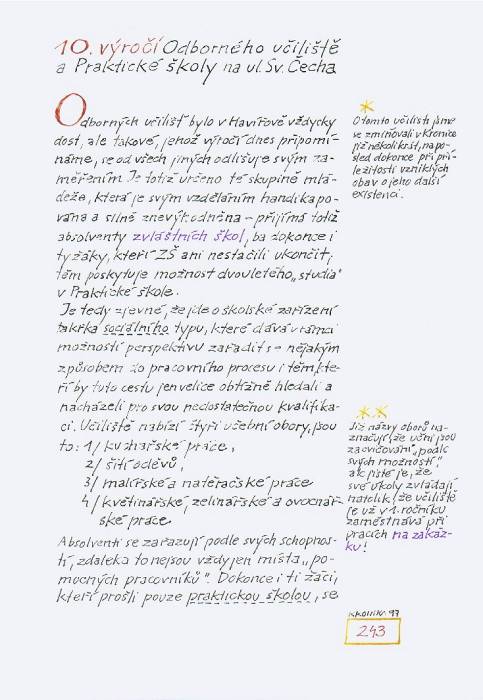 10. výročí Odborného učiliště
a Praktické školy na ul. Sv. Čecha
Odborných učilišť bylo v Havířově vždycky
dost, ale takové, jehož výročí dnes připomí-
náme, se od všech jiných odlišuje svým za-
měřením. Je totiž určeno té skupině mlá-
deže, která je svým vzděláním handikapo-
vána a silně znevýhodněna - přijímá totiž
absolventy zvláštních škol, ba dokonce i
ty žáky, kteří ZŠ ani nestačili ukončit;
těm poskytuje možnost dvouletého „studia"
v Praktické škole.
Je tedy zjevné, že jde o školské zařízení
takřka sociálního typu, které dává v rámci
možností perspektivu zařadit se nějakým
způsobem do pracovního procesu i těm, kte-
ří by tuto cestu jen velice obtížně hledali a
nacházeli pro svou nedostatečnou kvalifika-
ci. Učiliště nabízí čtyři učební obory, jsou
to: 1/ kuchařské práce,
2/ šití oděvů,
3/ malířské a natěračské práce
4/ květinářské, zelinářské a ovocnář-
ské práce.
Absolventi se zařazují podle svých schopnos-
tí, zdaleka to nejsou vždy jen místa „po-
mocných pracovníků". Dokonce i ti žáci,
kteří prošli pouze praktickou školou, se
*
O tomto učilišti jsme
se zmiňovali v Kronice
již několikrát, napo-
sled dokonce při pří-
ležitosti vzniklých
obav o jeho další
existenci.
**
Již názvy oborů na-
značují, že učni jsou
zacvičováni „podle
svých možností",
ale jisté je, že
své úkoly zvládají
natolik, že učiliště
je už v 1. ročníku
zaměstnává při
pracích na zakáz-
ku!
Kronika 97
243